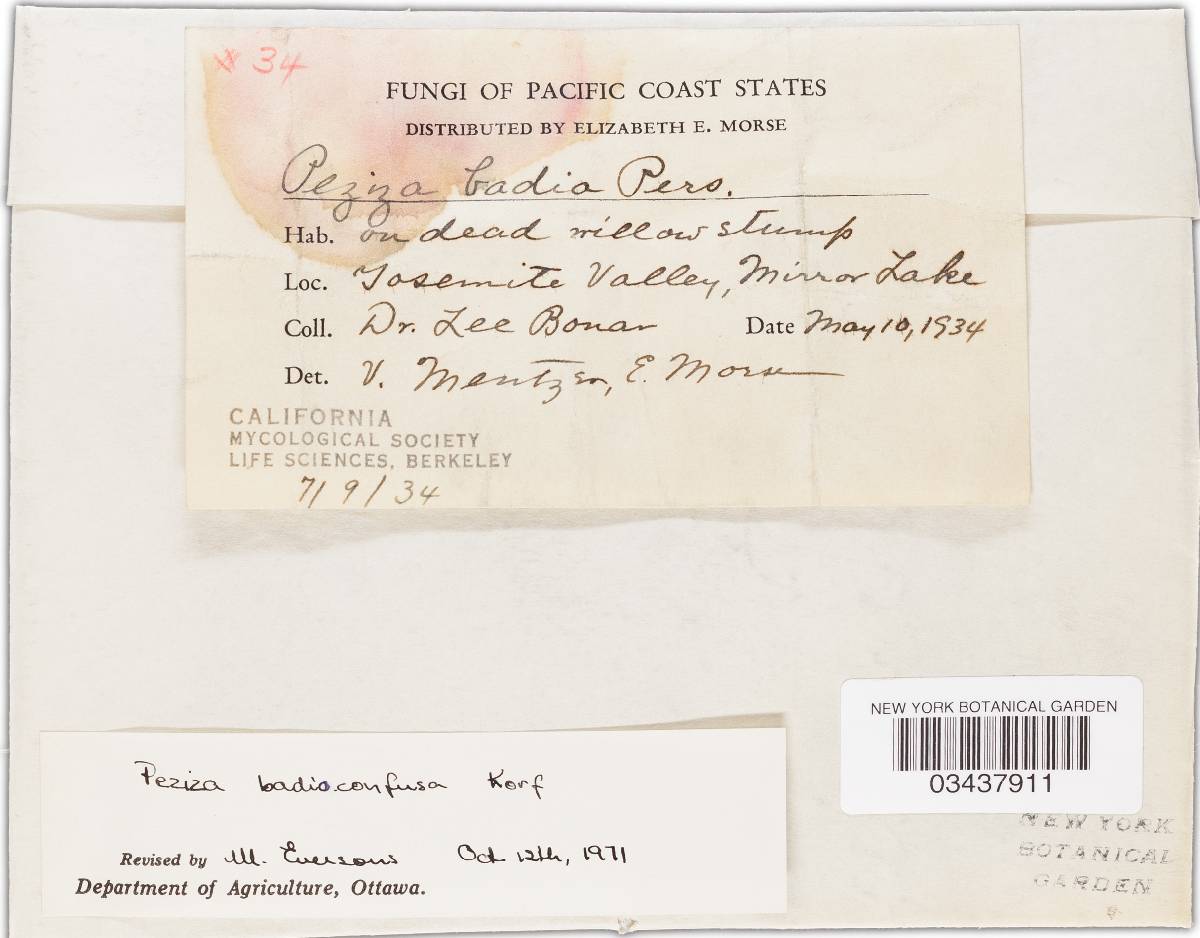 # 34
FUNGI OF PACIFIC COAST STATES
DISTRIBUTED BY ELIZABETH E. MORSE
Peziza badia Pers.
Hab. on dead willow stump
Loc. Yosemite Valley, Mirror Lake
Coll. Dr. Lee Bonar Date May 10, 1934
Det. V. Mentzer, E. Morse
CALIFORNIA
MYCOLOGICAL SOCIETY
LIFE SCIENCES, BERKELEY
7/9/34
NEW YORK BOTANICAL GARDEN
03437911
NEW YORK
BOTANICAL
GARDEN
Peziza badioconfusa Korf
Revised by M. Eversons Oct 12th, 1971
Department of Agriculture, Ottawa.